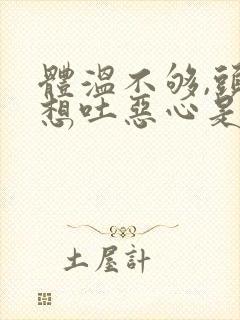 體溫不够,頭
想吐惡心是
土屋計